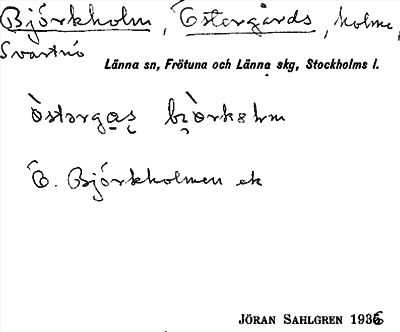 Björkholm, Östergårds, holme,
Svartnö
Länna sn, Frötuna och Länna skg, Stockholms l.
òstərgas bjòrkəlm
Ö. Björkholmen ek
JÖRAN SAHLGREN 1936